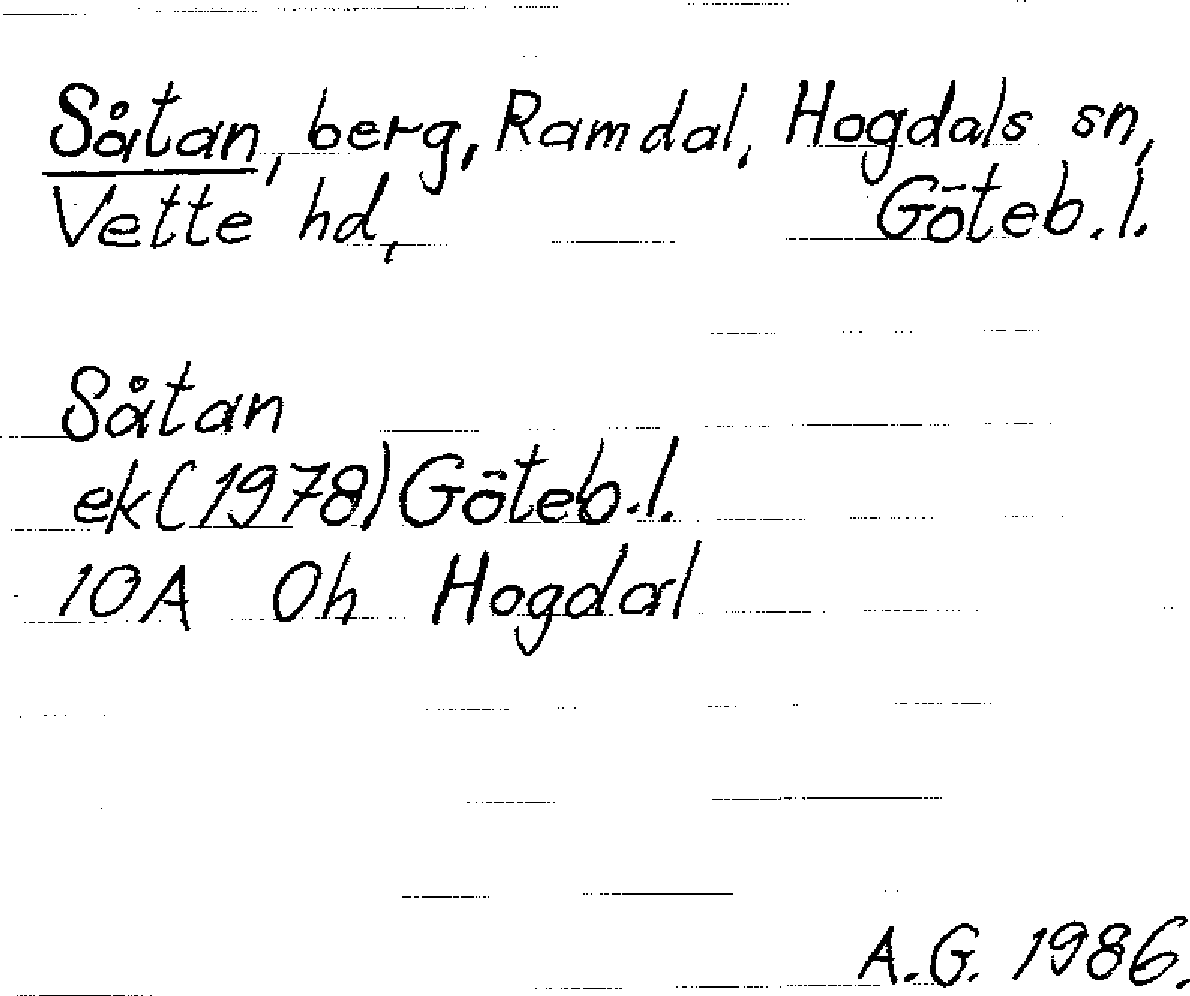 Såtan, berg, Ramdal, Hogdals sn,
Vette hd, Göteb.l.
Såtan
ek(1978)Göteb.l.
10A 0h Hogdal
A.G. 1986.